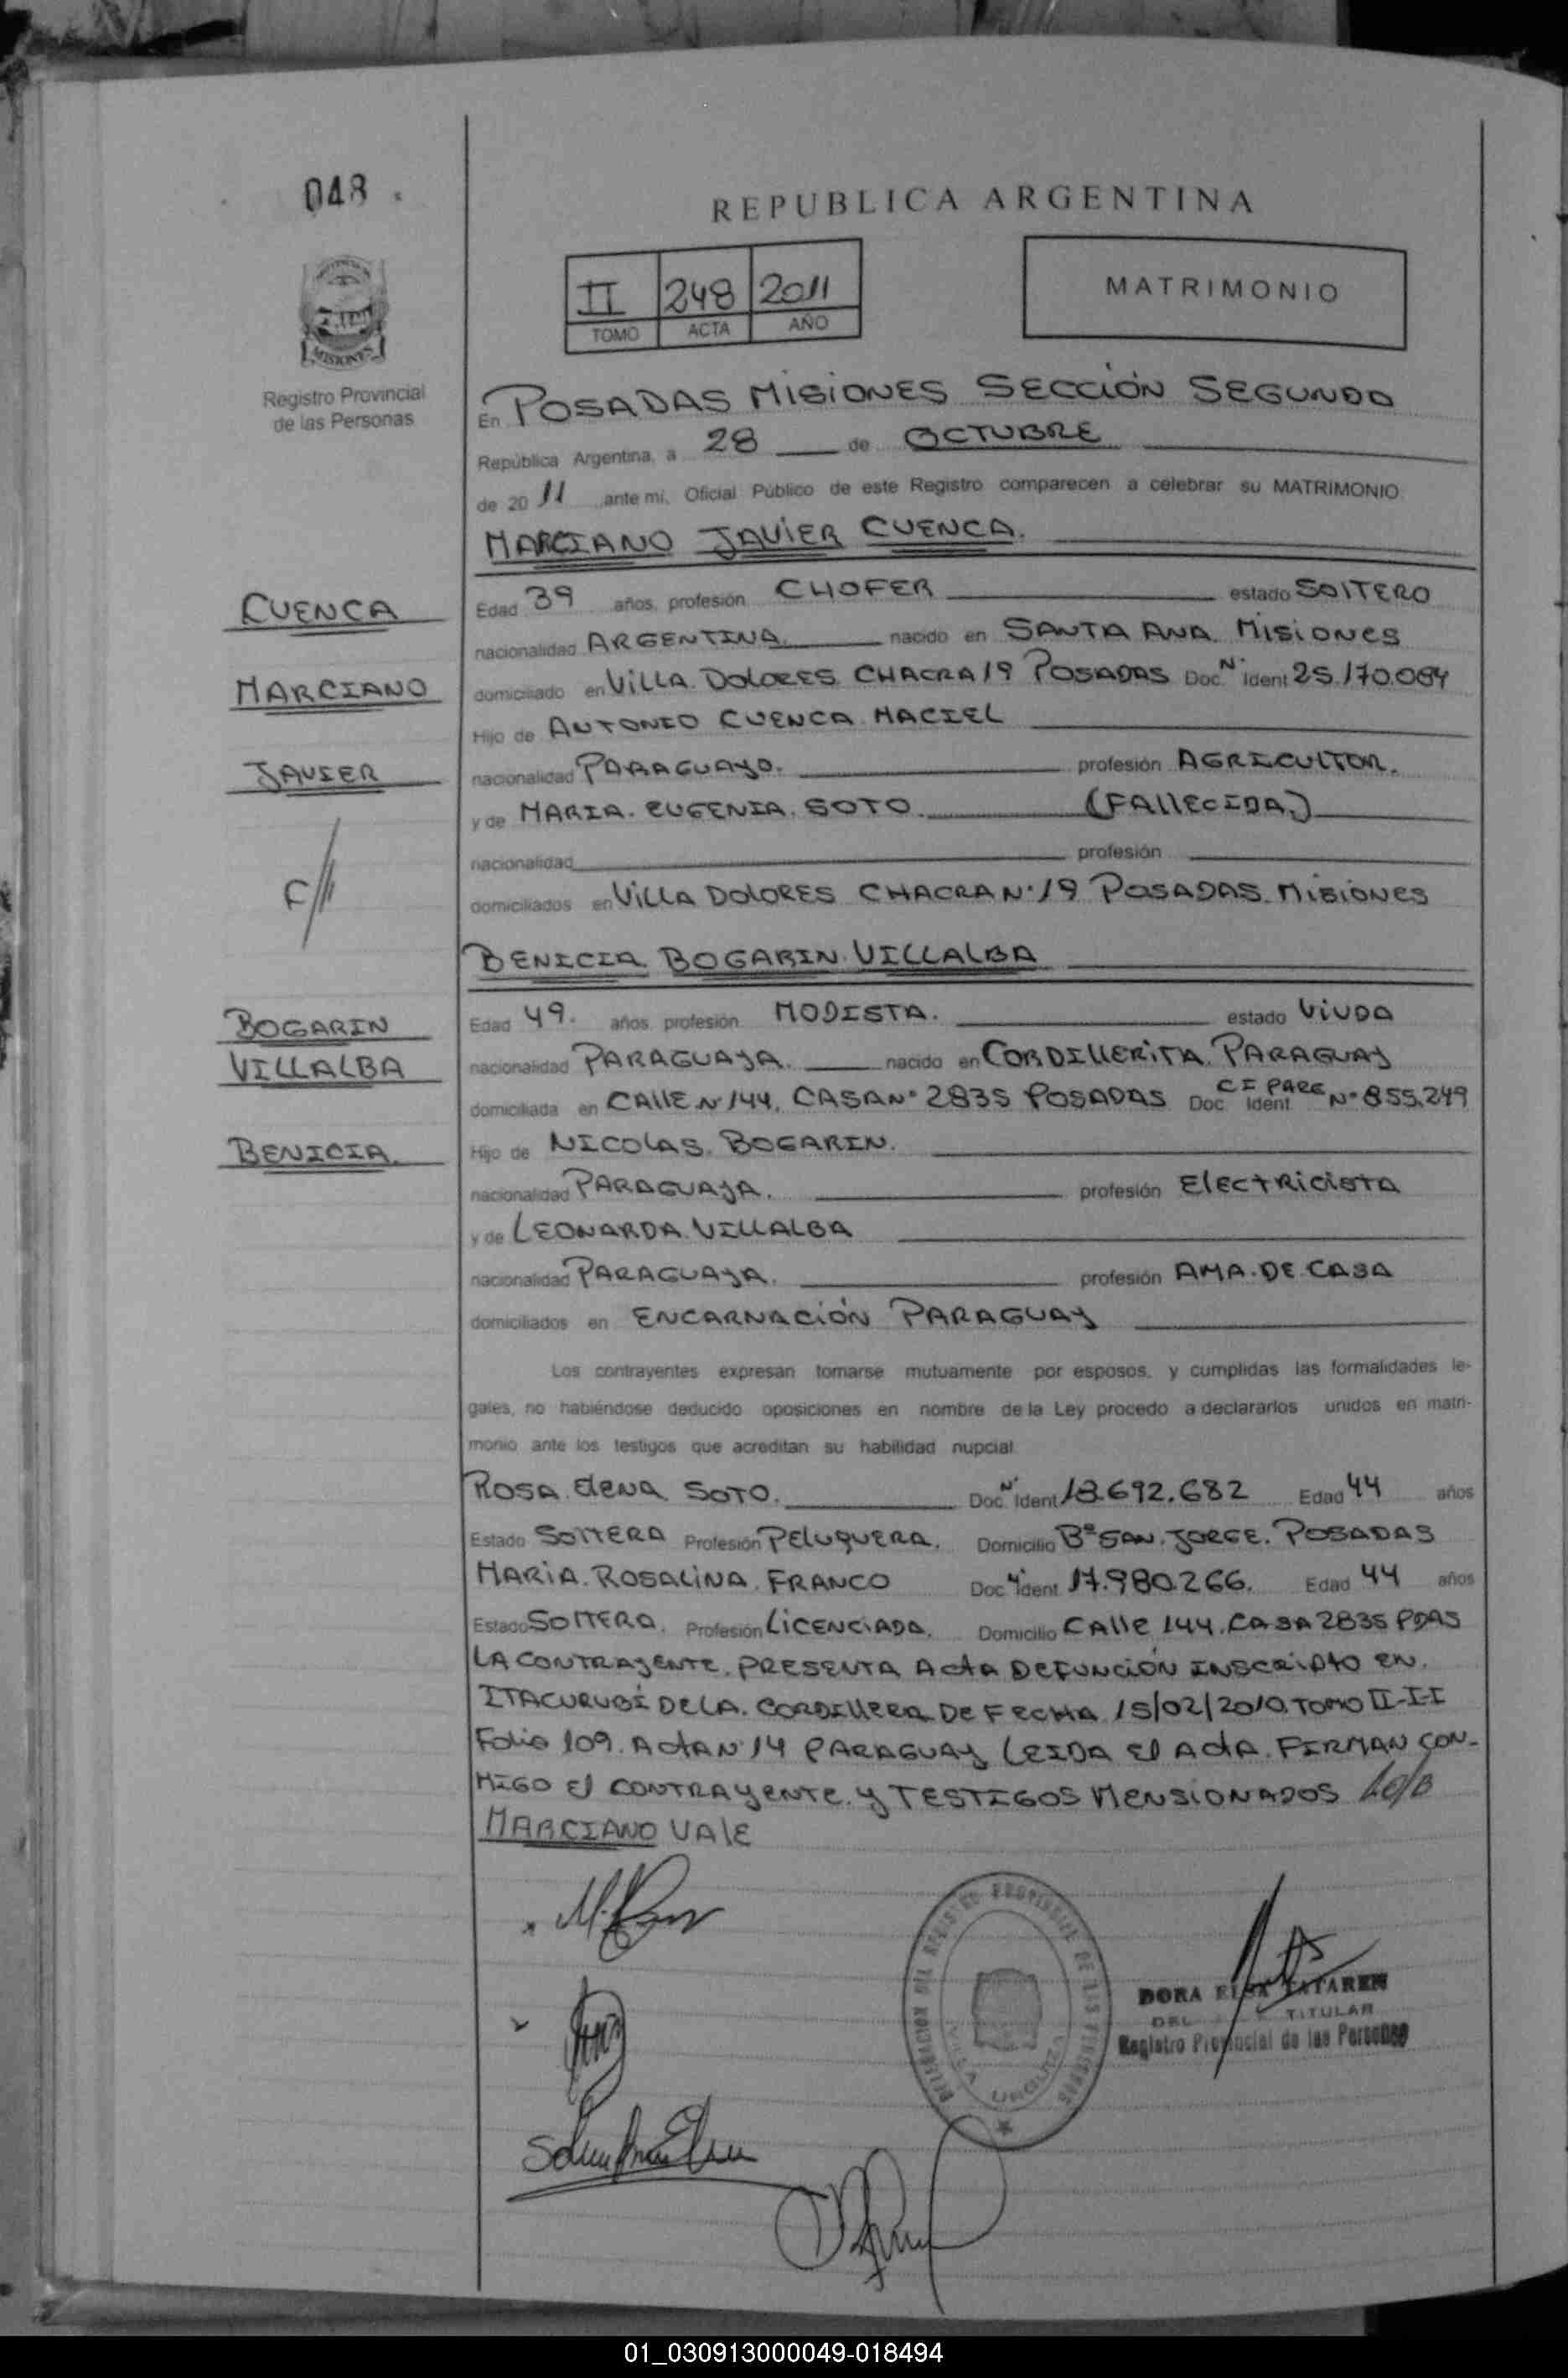 048
REPUBLICA ARGENTINA
II 248 2011
TOMO ACTA AÑO
MATRIMONIO
MISIONES
Registro Provincial
de las Personas
En POSADAS MISIONES SECCIÓN SEGUNDA
República Argentina, a 28 de OCTUBRE
de 2011 ante mí, Oficial Público de este Registro comparecen a celebrar su MATRIMONIO
MARCIANO JAVIER CUENCA.
CUENCA
MARCIANO
JAVIER
Edad 39 años, profesión CHOFER estado SOLTERO
nacionalidad ARGENTINA. nacido en SANTA ANA. MISIONES
domiciliado en VILLA DOLORES CHACRA 19 POSADAS Doc. Nº Ident 25.170.084
Hijo de ANTONIO CUENCA MACIEL
nacionalidad PARAGUAYO. profesión AGRICULTOR.
y de MARIA. EUGENIA. SOTO. (FALLECIDA.)
nacionalidad profesión
domiciliados en VILLA DOLORES CHACRA Nº 19 POSADAS. MISIONES
BENICIA BOGARIN VILLALBA
BOGARIN
VILLALBA
BENICIA.
Edad 49. años profesión MODISTA. estado VIUDA
nacionalidad PARAGUAYA. nacido en CORDILLERITA. PARAGUAY
domiciliada en CALLE Nº 144. CASA Nº 2835 POSADAS Doc. Ident. CI PARG Nº 855.249
Hijo de NICOLAS. BOGARIN.
nacionalidad PARAGUAYA. profesión ELECTRICISTA
y de LEONARDA. VILLALBA
nacionalidad PARAGUAYA. profesión AMA. DE CASA
domiciliados en ENCARNACIÓN PARAGUAY
Los contrayentes expresan tomarse mutuamente por esposos, y cumplidas las formalidades le-
gales, no habiéndose deducido oposiciones en nombre de la Ley procedo a declararlos unidos en matri-
monio ante los testigos que acreditan su habilidad nupcial
ROSA. ELENA. SOTO. Doc. Nº Ident 18.692.682 Edad 44 años
Estado SOLTERA Profesión PELUQUERA. Domicilio Bº SAN. JORGE. POSADAS
MARIA. ROSALINA. FRANCO Doc. Ident 17.980.266. Edad 44 años
Estado SOLTERA. Profesión LICENCIADA. Domicilio CALLE 144. CASA 2835 PDAS
LA CONTRAYENTE. PRESENTA ACTA DEFUNCIÓN INSCRIPTO EN.
ITACURUBÍ DE LA. CORDILLERA DE FECHA 15/02/2010. TOMO II-I-I
FOLIO 109. ACTA Nº 14 PARAGUAY LEIDA EL ACTA. FIRMAN CON-
MIGO EL CONTRAYENTE. Y TESTIGOS MENSIONADOS
MARCIANO VALE
DELEGACION DEL REGISTRO PROVINCIAL DE LAS PERSONAS
VILLA URQUIZA
DORA ELSA
TITULAR
Registro Provincial de las Personas
01_030913000049-018494